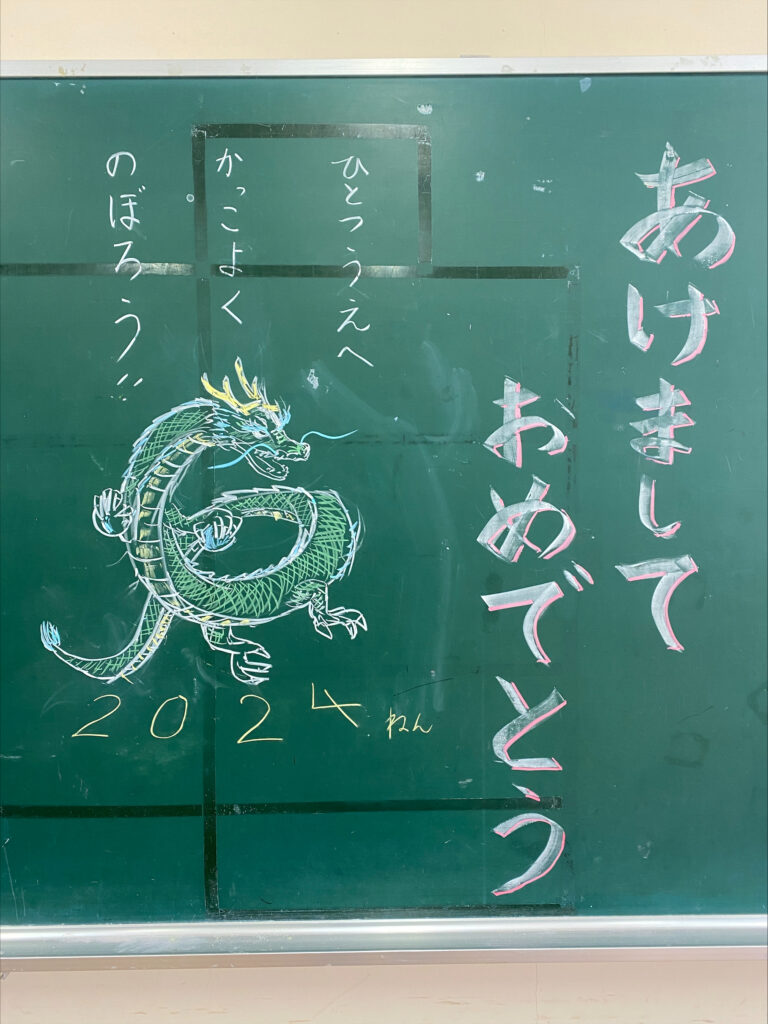 あけまして
おめでとう
ひとつうえへ
かっこよく
のぼろう!!
2024ねん